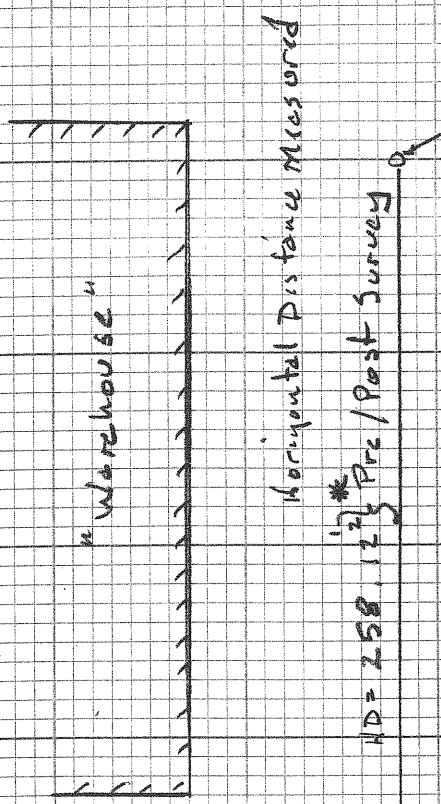 "Warehouse"
Horizontal Distance Measured
HD = 258.12' * Pre/Post Survey